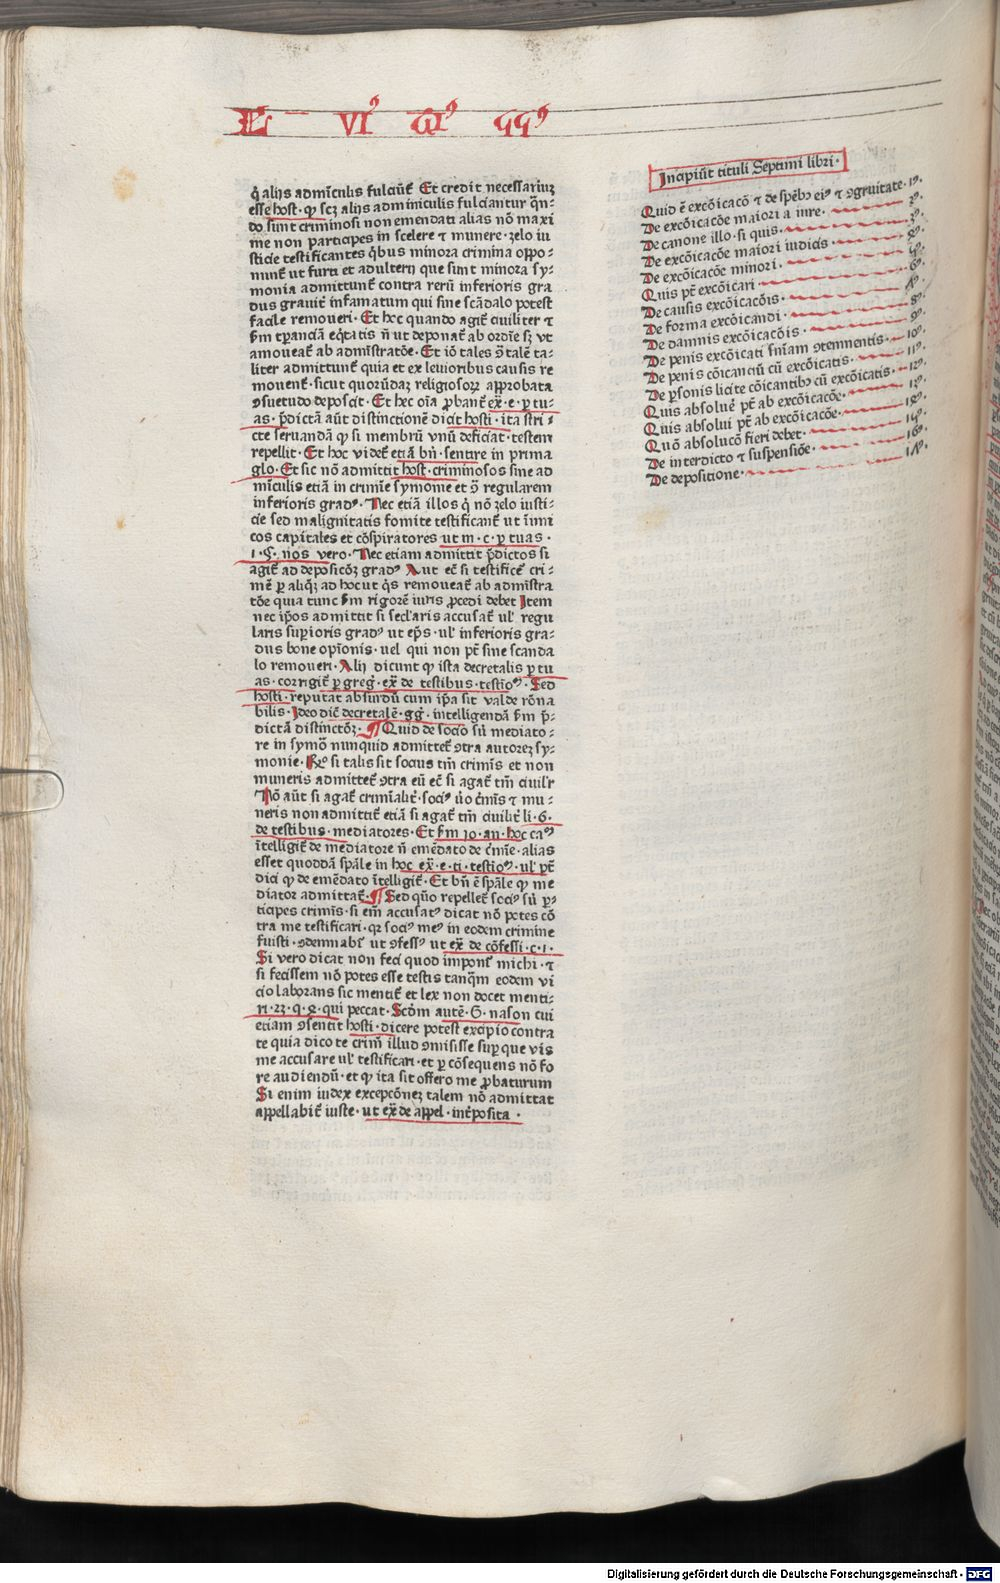 L VI
q̇ alijs adminiculis fulciūt̃ Et credit necessariuʒ
esse host· ꝙ scʒ alijs adminiculis fulciantur q̄n⸗
do sunt criminosi non emendati alias nō maxi
me non participes in scelere ⁊ munere· zelo iu
sticie testificantes q̇bus minora crimina oppo⸗
nunt̃ ut furti et adulterij que sunt minora sy⸗
monia admittunt̃ contra rerū inferioris gra
dus grauit̃ infamatum qui sine scādalo potest
facile remoueri· Et hoc quando agit̃ ciuiliter ⁊
amoueat̃ ab admīstratōe· Et iō tales ꝯ talē ta⸗
liter admittunt̃ quia et ex leuioribus causis re
mouent̃· sicut quorūdaʒ religiosoꝝ approbata
ꝯsuetudo deposcit· Et hec oīa ꝓbant̃ ex̄· e· ꝑ tu⸗
as· p̄dictā aūt distinctionē dicit hosti· ita stri⸗
cte seruandā ꝙ si membrū vnū deficiat· testem
repellit· Et hoc videt̃ etiā bn̄· sentire in prima
glo· Et sic nō admittit host· criminosos sine ad
mīculis etiā in crimīe symonie et ꝯ̄ regularem
inferioris gradꝰ· Nec etiā illos q̇ nō zelo iusti⸗
cie sed malignitatis fomite testificant̃ ut īimi
cos capitales et cōspiratores ut in· c· ꝑ tuas·
1· §· nos vero· Nec etiam admittit p̄dictos si
agit̃ ad deposicōʒ gradꝰ Aut ec̄ si testificet̃ cri⸗
mē ꝑ aliqʒ ad hoc ut q̇s remoueat̃ ab admīstra
tōe quia tunc ẜm rigorē iuris ꝓcedi debet Item
nec ip̄os admittit si secl'aris accusat̃ ul' regu
laris superioris gradꝰ ut ep̄s· ul' inferioris gra⸗
dus bone opīonis· uel qui non pt̃ sine scanda
lo remoueri· Alij dicunt ꝙ ista decretalis ꝑ tu
as· corrigit̃ ꝑ greg̃· ex̄ de testibus· testioꝰ· Sed
hosti· reputat absurdū cum ip̄a sit valde rōna
bilis· Ideo dic̃ decretalē· gg̃· intelligendā ẜm p̄⸗
dictā distinctōʒ· ¶ Quid de socio sū mediato⸗
re in symō nunquid admittet̃ ꝯtra autoreʒ sy⸗
monie· Rͦ si talis sit socius tm̄ crimīs et non
muneris admittet̃ ꝯtra eū ec̄ si agat̃ tm̄ ciuil'r
Nō aūt si agat̃ crimīalit̃· sociꝰ ūo c̄mīs ⁊ mu⸗
neris non admittit̃ etiā si agat̃ tm̄ ciuilit̃ li· 6·
de testibus· mediatores· Et ẜm io· an· hoc caꝰ
ītelligit̃ de mediatore n̄ emēdato de c̄mīe· alias
esset quoddā sp̄ale in hoc ex̄· e· ti· testioꝰ· ul' pt̃
dici ꝙ de emēdato ītelligit̃· Et bn̄ ē sp̄ale ꝙ me
diator admittat̃· ¶ Sed quō repellet̃ sociꝰ sū ꝑ⸗
ticipes crimīs· si em̄ accusatꝰ dicat nō potes cō
tra me testificari· qꝛ sociꝰ meꝰ in eodem crimine
fuisti· ꝯdemnab̃ ut ꝯfessꝰ ut ex̄ de cōfessi· c· 1·
Si vero dicat non feci quod imponit̃ michi· ⁊
si fecissem nō potes esse testis tanq̄m eodem vi
cio laborans sic mentit̃ et lex non docet menti⸗
ri· 22· q· 2· qui peccat· Scd̄m autē· G· nason cui
etiam ꝯsentit hosti· dicere potest excipio contra
te quia dico te crim̄ illud ꝯmisisse super que vis
me accusare ul' testificari· et ꝑ cōsequens nō fo
re audiendū· et ꝙ ita sit offero me ꝓbaturum
Si enim iudex excepcōneʒ talem nō admittat
appellabit̃ iuste· ut ex̄ de appel· int̃posita·
Incipiūt tituli Septimi libri·
Quid ē excōicacō ⁊ de spēbꝫ eiꝰ ⁊ ꝯgruitate· 1ꝰ·
De excōicacōe maiori a iure· 2ꝰ·
De canone illo· si quis· 3ꝰ·
De excōicacōe maiori iudicis 4ꝰ·
De excōicacōe minori· 5ꝰ·
Quis pt̃ excōicari 6ꝰ·
De causis excōicacōis· 7ꝰ·
De forma excōicandi· 8ꝰ·
De damnis excōicacōis· 9ꝰ·
De penis excōicati sn̄iam ꝯtemnentis· 10ꝰ·
De penis cōicanciū cū excōicatis· 11ꝰ·
De ꝑsonis licite cōicantibꝫ cū excōicatis· 12ꝰ·
Quis absoluē pt̃ ab excōicacōe· 13ꝰ·
Quis absolui pt̃ ab excōicacōe· 14ꝰ·
Quō absolucō fieri debet· 15ꝰ·
De interdicto ⁊ suspensiōe· 16ꝰ·
De depositione· 17ꝰ·
Digitalisierung gefördert durch die Deutsche Forschungsgemeinschaft · DFG